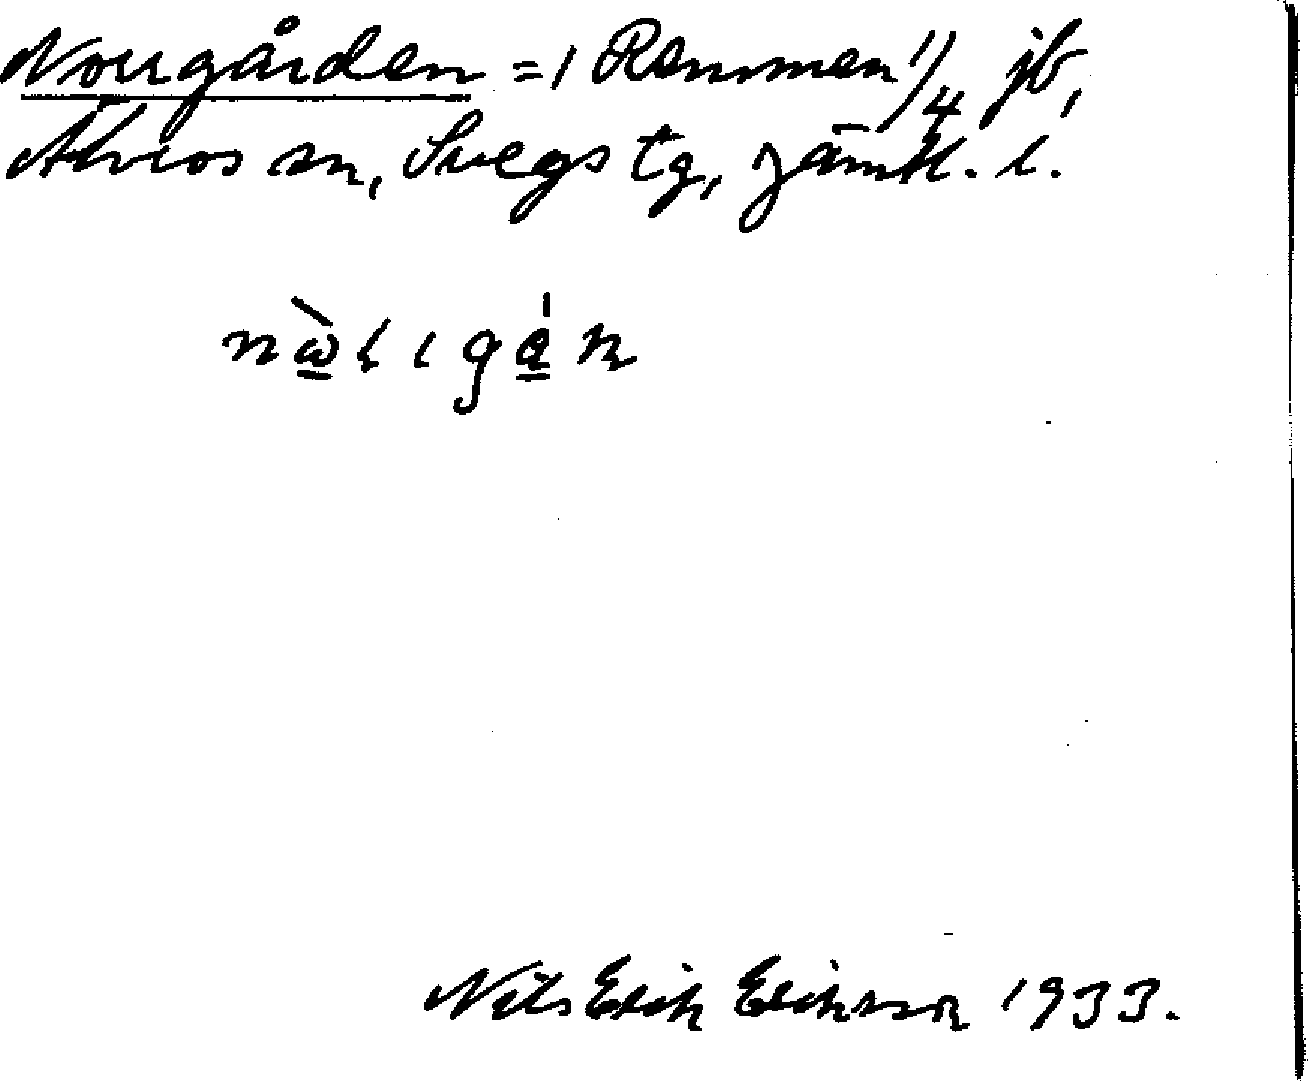 Norrgården = 1 Remmen 1/4 jb,
Älvros sn, Svegs tg, Jämtl. l.
Nils Erik Eriksson 1933.